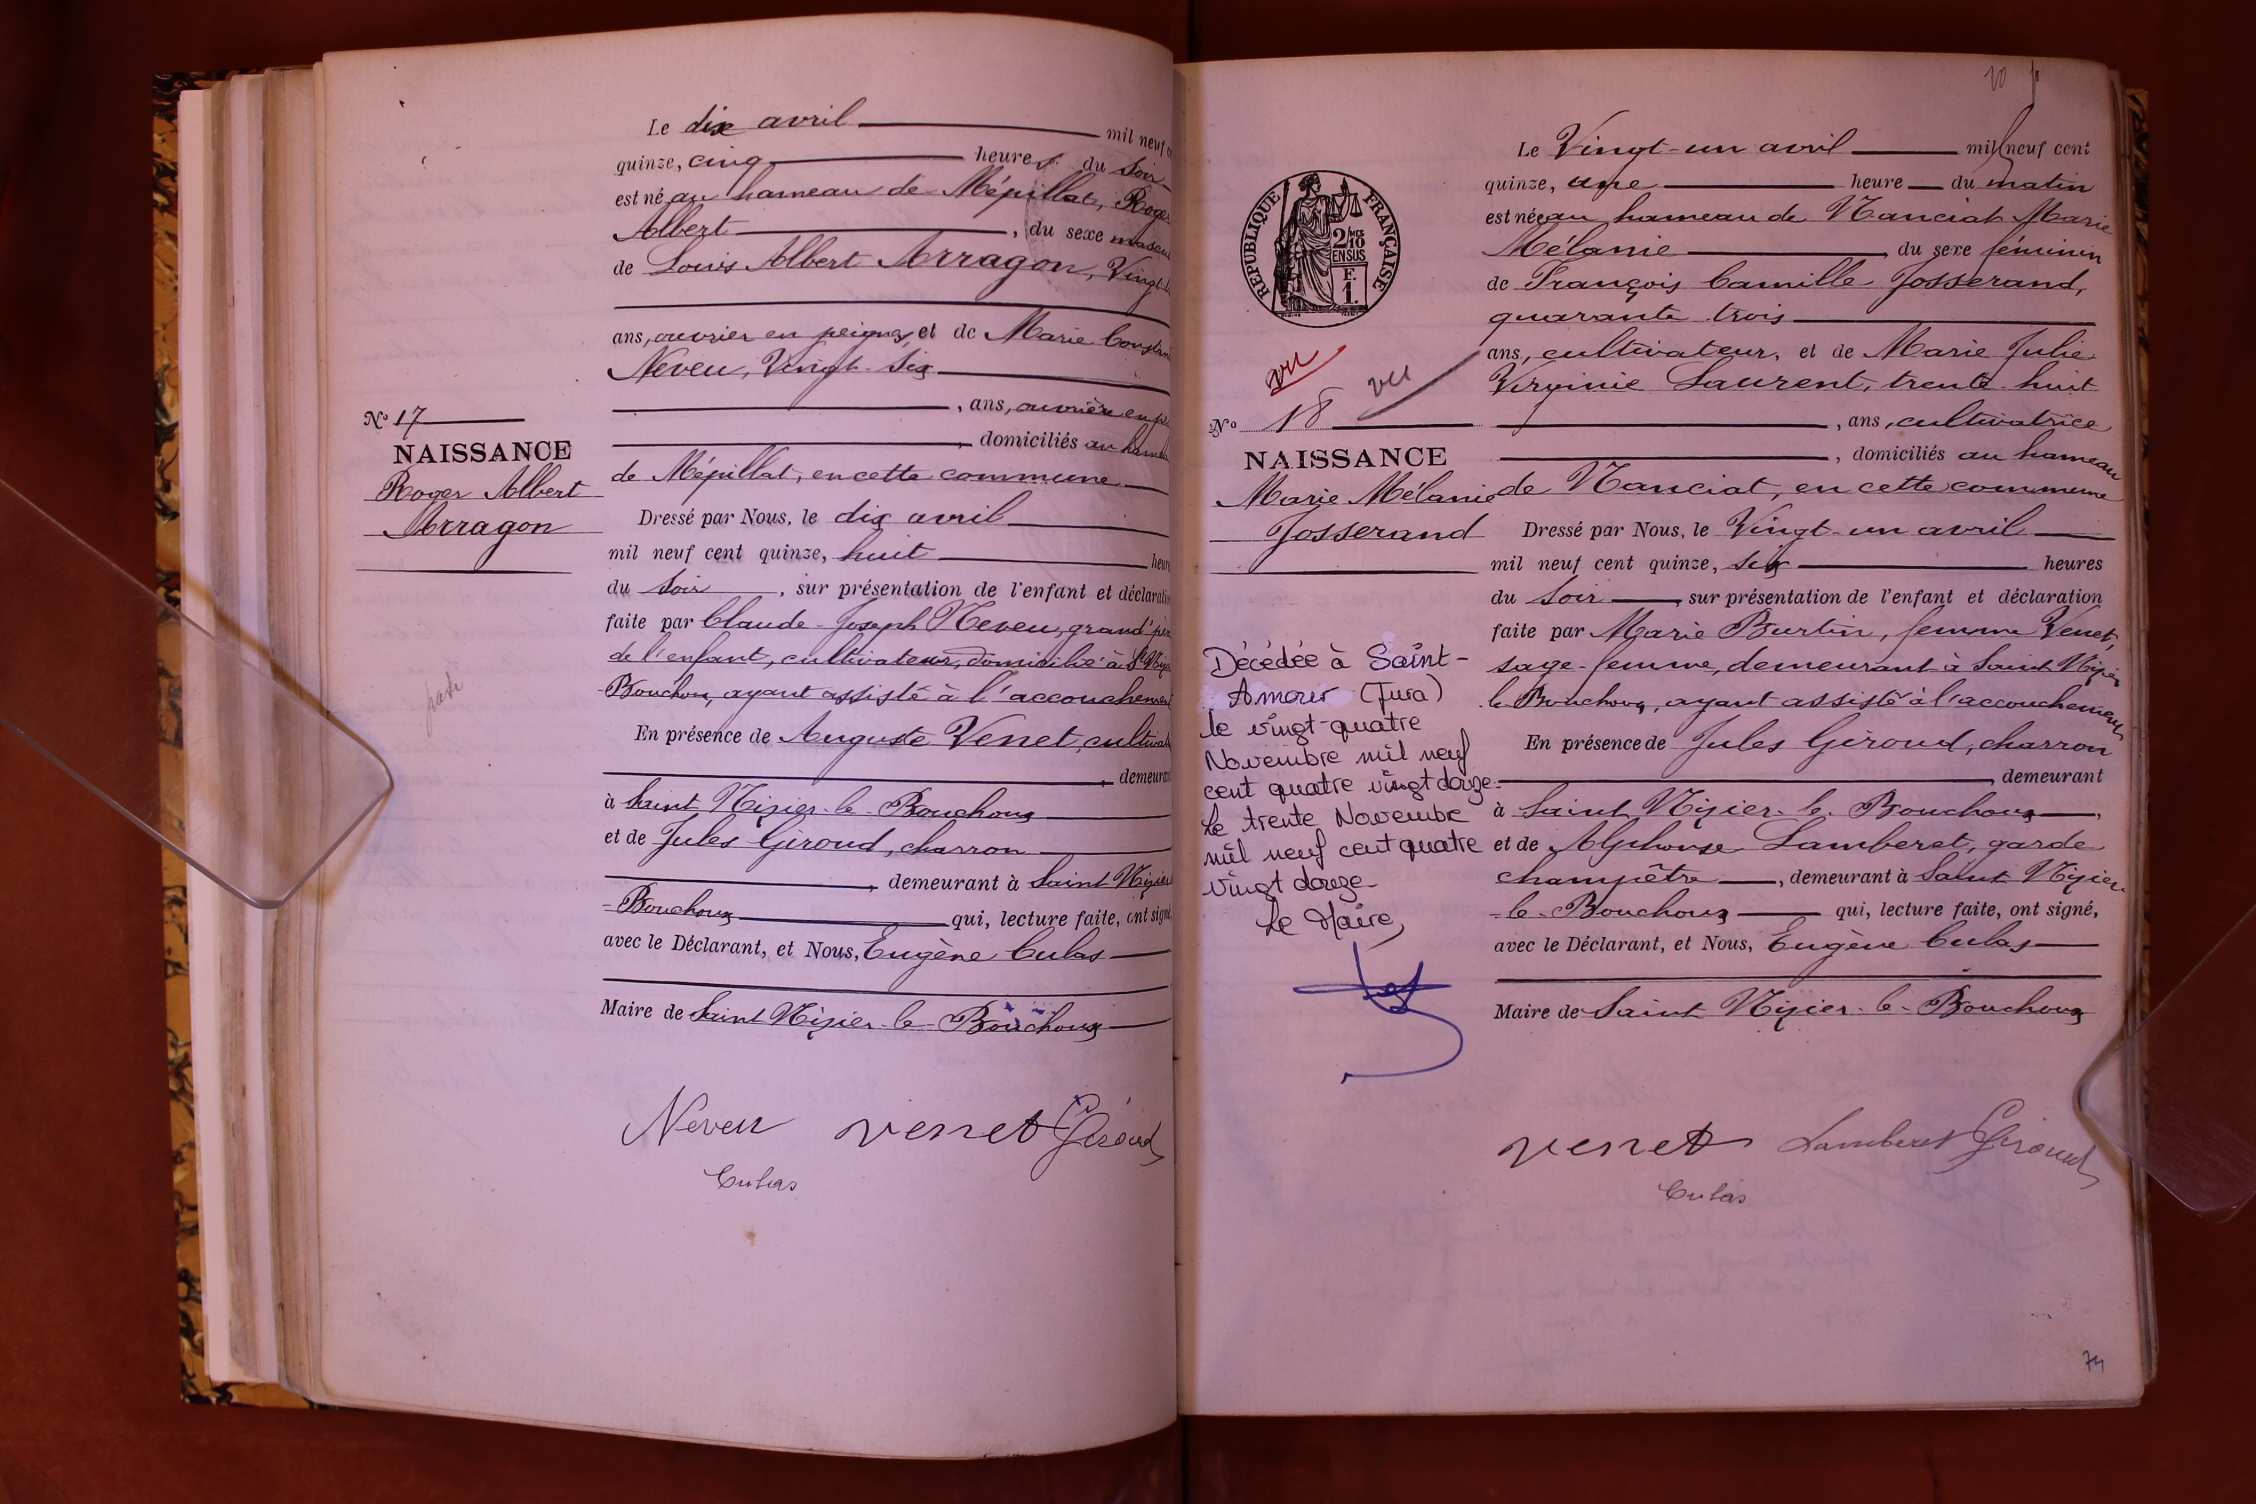 Le dix avril mil neuf
quinze, cinq heures du soir
est né au hameau de Mépillat, Roger
Albert, du sexe
de Louis Albert Arragon,
ans, ouvrier en peignes, et de Marie
Neveu, Vingt-six
, ans, ouvrière en
, domiciliés au
de Mépillat, en cette commune
Nº 17
NAISSANCE
Roger Albert
Arragon
Dressé par Nous, le dix avril
mil neuf cent quinze, huit
du soir, sur présentation de l'enfant et
faite par Claude-Joseph Neveu, grand'père
de l'enfant, cultivateur, domicilié à St
Bouchoux, ayant assisté à l'accouchement
En présence de Auguste Venet,
, demeurant
à Saint Nizier-le-Bouchoux
et de Jules Giroud, charron
, demeurant à Saint Nizier
-Bouchoux qui, lecture faite, ont signé
avec le Déclarant, et Nous, Eugène Culas
Maire de Saint Nizier-le-Bouchoux
Neveu Venet Giroud
Culas
20
Le Vingt-un avril mil neuf cent
quinze, une heure du matin
est née au hameau de Nanciat Marie
Mélanie du sexe féminin
de François Camille Josserand,
quarante trois
ans, cultivateur, et de Marie Julie
Virginie Laurent, trente-huit
, ans, cultivatrice
, domiciliés au hameau
de Nanciat, en cette commune
RÉPUBLIQUE FRANÇAISE
2/10
EN SUS
F.
1.
vu
vu
Nº 18
NAISSANCE
Marie Mélanie
Josserand
Dressé par Nous, le Vingt-un avril
mil neuf cent quinze, six heures
du soir, sur présentation de l'enfant et déclaration
faite par Marie Burtin, femme Venet,
sage-femme, demeurant à Saint Nizier
le Bouchoux, ayant assisté à l'accouchement
En présence de Jules Giroud, charron
, demeurant
à Saint Nizier-le-Bouchoux,
et de Alphonse Lamberet, garde
champêtre, demeurant à Saint Nizier
-le-Bouchoux qui, lecture faite, ont signé,
avec le Déclarant, et Nous, Eugène Culas
Maire de Saint Nizier-le-Bouchoux
Décédée à Saint-
Amour (Jura)
le vingt-quatre
Novembre mil neuf
cent quatre vingt douze.
Le trente Novembre
mil neuf cent quatre
vingt douze
Le Maire,
Venet Lamberet Giroud
Culas
74